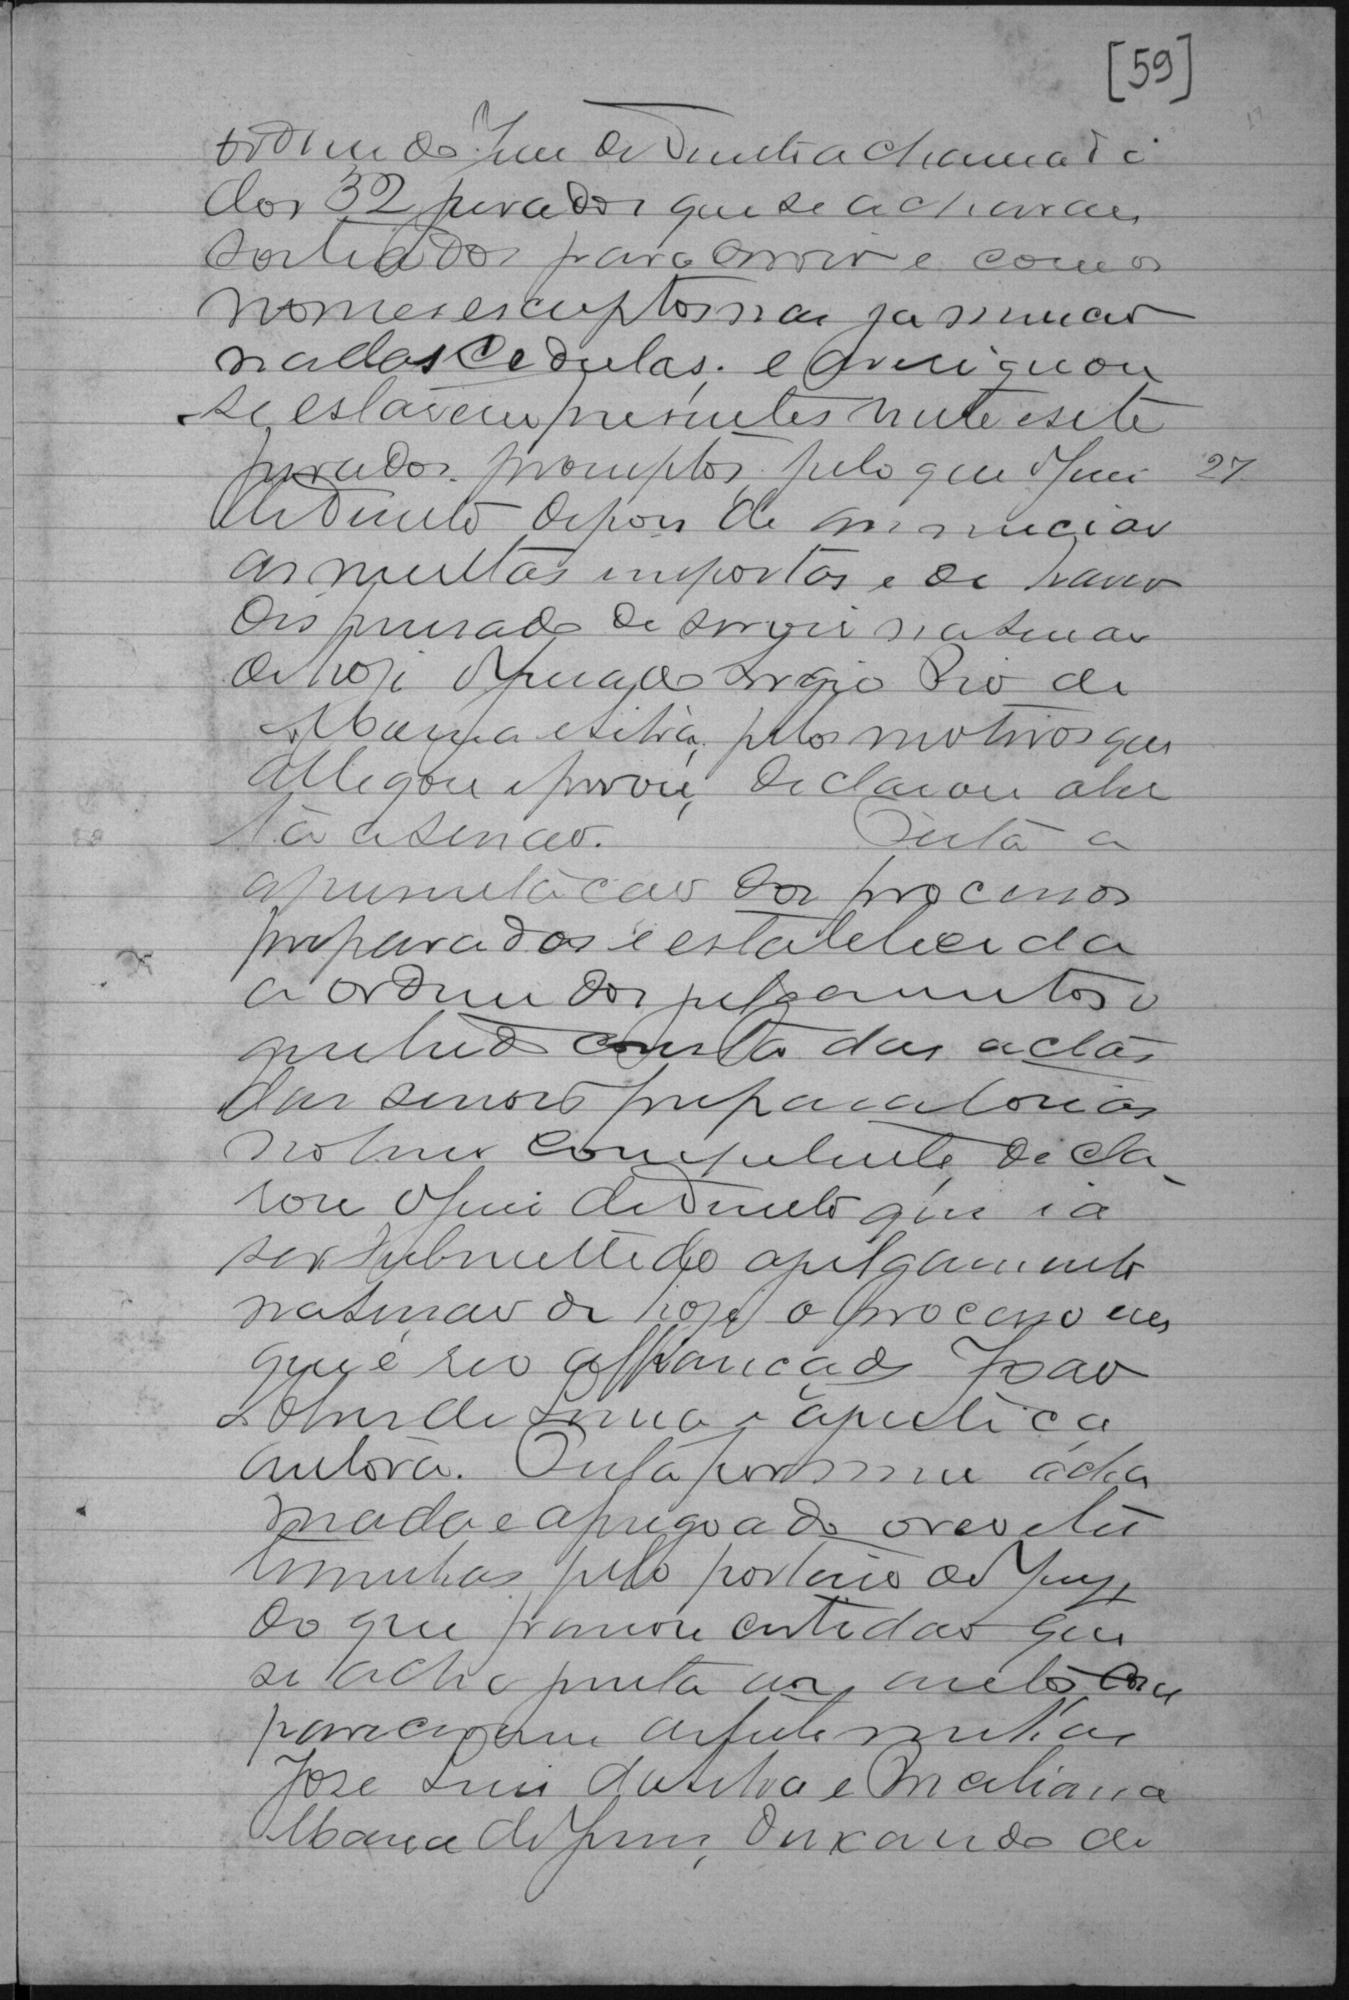 [59]
ordem do Juiz de Direito a chamada
dos 32 jurados que se achavam
sorteados para servir e com os
nomes escriptos nas
nadas cedulas, e averiguou
se estarem presentes vinte e sete
jurados promptos, pelo que o Juiz 27
de Direito depois de annunciar
as multas impostas e de haver
dispensado de servir na sessão
de hoje o jurado Sergio Pio de
Maria e Silva, pelos motivos que
allegou e provou, declarou aber
ta a sessão. Feita a
apresentação dos processos
preparados e estabelecida
a ordem dos julgamentos o
que tudo consta das actas
das sessões preparatorias
no livro competente, decla
rou o Juiz de Direito que ia
ser submettido a julgamento
na sessão de hoje o processo em
que é reo affiançado João
de Lima e a justiça
autora. Feita por mim a cha
mada e apregoado o reo e tes
temunhas pelo porteiro do Jury
do que passou certidão que
se acha junta aos autos com
pareceram as testemunhas
José Luiz da Silva e
Maria de Jesus, deixando de